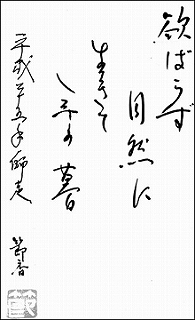 欲ばらず
自然に
生きて
年の暮
平成二十五年師走
節香